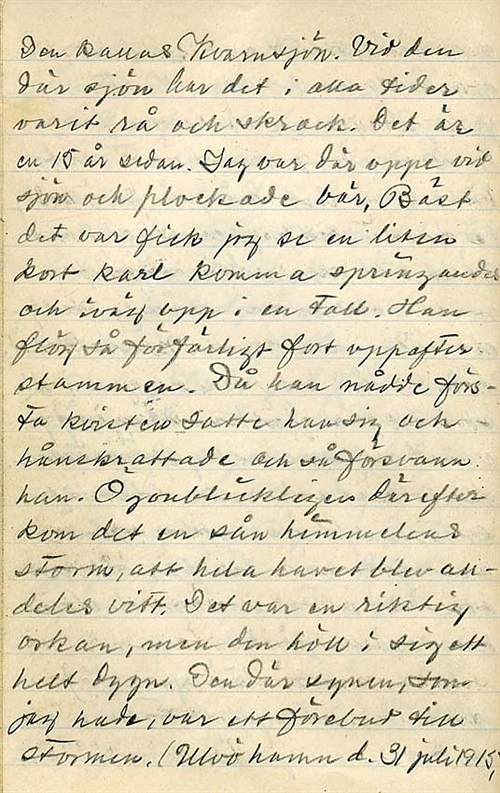 Den kallas Kvarnsjön. Vid den
där sjön har det i alla tider
varit rå och skrock. Det är
en 15 år sedan. Jag var där oppe vid
sjön och plockade bär, Bäst
det var fick jag se en liten
kort karl komma springandes
och iväg opp i en tall. Han
flög så förfärligt fort oppefter
stammen. Då han nådde förs-
ta kvisten satte han sig och
hånskrattade och så försvann
han. Ögonblickligen därefter
kom det en sån himmelens
storm, att hela havet blev all-
deles vitt. Det var en riktig
orkan, men den höll i sig ett
helt dygn. Den där synen, som
jag hade, var ett förebud till
stormen. (Ulvö hamn d. 31 juli 1915,